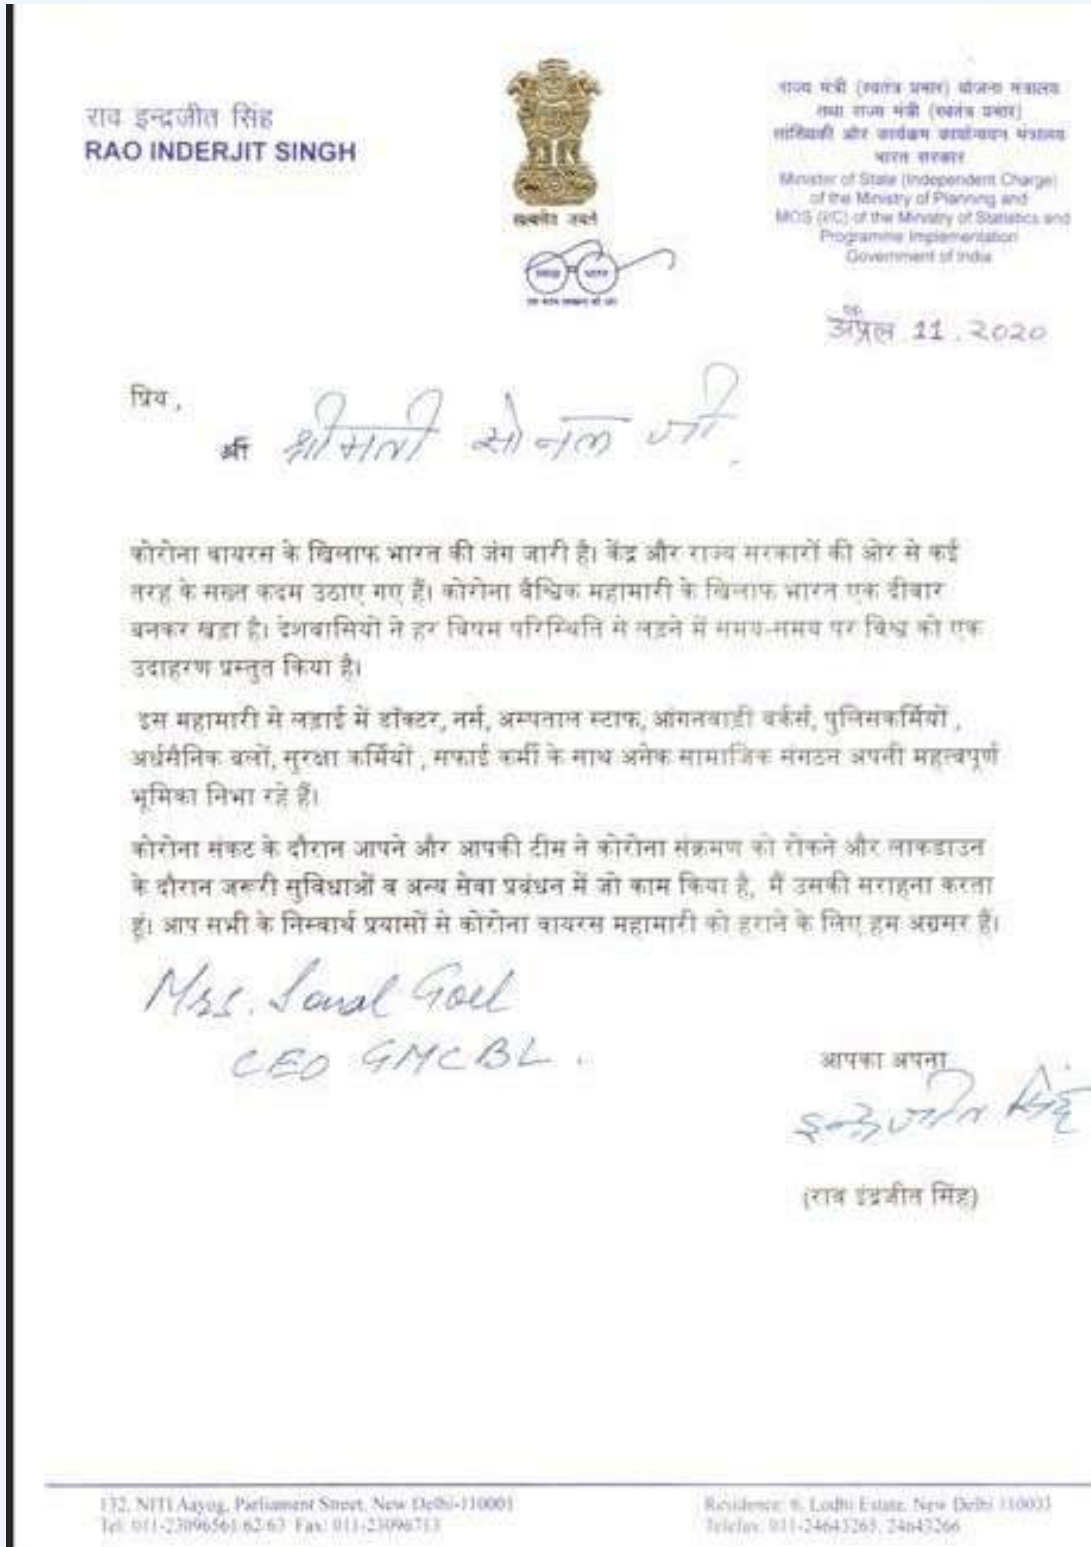 राव इन्द्रजीत सिंह
RAO INDERJIT SINGH
सत्यमेव जयते
स्वच्छ भारत
एक कदम स्वच्छता की ओर
राज्य मंत्री (स्वतंत्र प्रभार) योजना मंत्रालय
तथा राज्य मंत्री (स्वतंत्र प्रभार)
सांख्यिकी और कार्यक्रम कार्यान्वयन मंत्रालय
भारत सरकार
Minister of State (Independent Charge)
of the Ministry of Planning and
MOS (I/C) of the Ministry of Statistics and
Programme Implementation
Government of India
अप्रैल 11, 2020
प्रिय ,
श्री श्रीमती सोनल जी
कोरोना वायरस के खिलाफ भारत की जंग जारी है। केंद्र और राज्य सरकारों की ओर से कई
तरह के सख्त कदम उठाए गए हैं। कोरोना वैश्विक महामारी के खिलाफ भारत एक दीवार
बनकर खड़ा है। देशवासियों ने हर विषम परिस्थिति से लड़ने में समय-समय पर विश्व को एक
उदाहरण प्रस्तुत किया है।
इस महामारी से लड़ाई में डॉक्टर, नर्स, अस्पताल स्टाफ, आंगनवाडी वर्कर्स, पुलिसकर्मियों ,
अर्धसैनिक बलों, सुरक्षा कर्मियों , सफाई कर्मी के साथ अनेक सामाजिक संगठन अपनी महत्वपूर्ण
भूमिका निभा रहे हैं।
कोरोना संकट के दौरान आपने और आपकी टीम ने कोरोना संक्रमण को रोकने और लाकडाउन
के दौरान जरूरी सुविधाओं व अन्य सेवा प्रबंधन में जो काम किया है, मैं उसकी सराहना करता
हूं। आप सभी के निस्वार्थ प्रयासों से कोरोना वायरस महामारी को हराने के लिए हम अग्रसर हैं।
Mrs. Sonal Goel
CEO GMCBL.
आपका अपना
इन्द्रजीत सिंह
(राव इंद्रजीत सिंह)
132, NITI Aayog, Parliament Street, New Delhi-110001
Tel: 011-23096561/62/63 Fax: 011-23096713
Residence: 6, Lodhi Estate, New Delhi 110033
Telefax: 011-24643265, 24643266